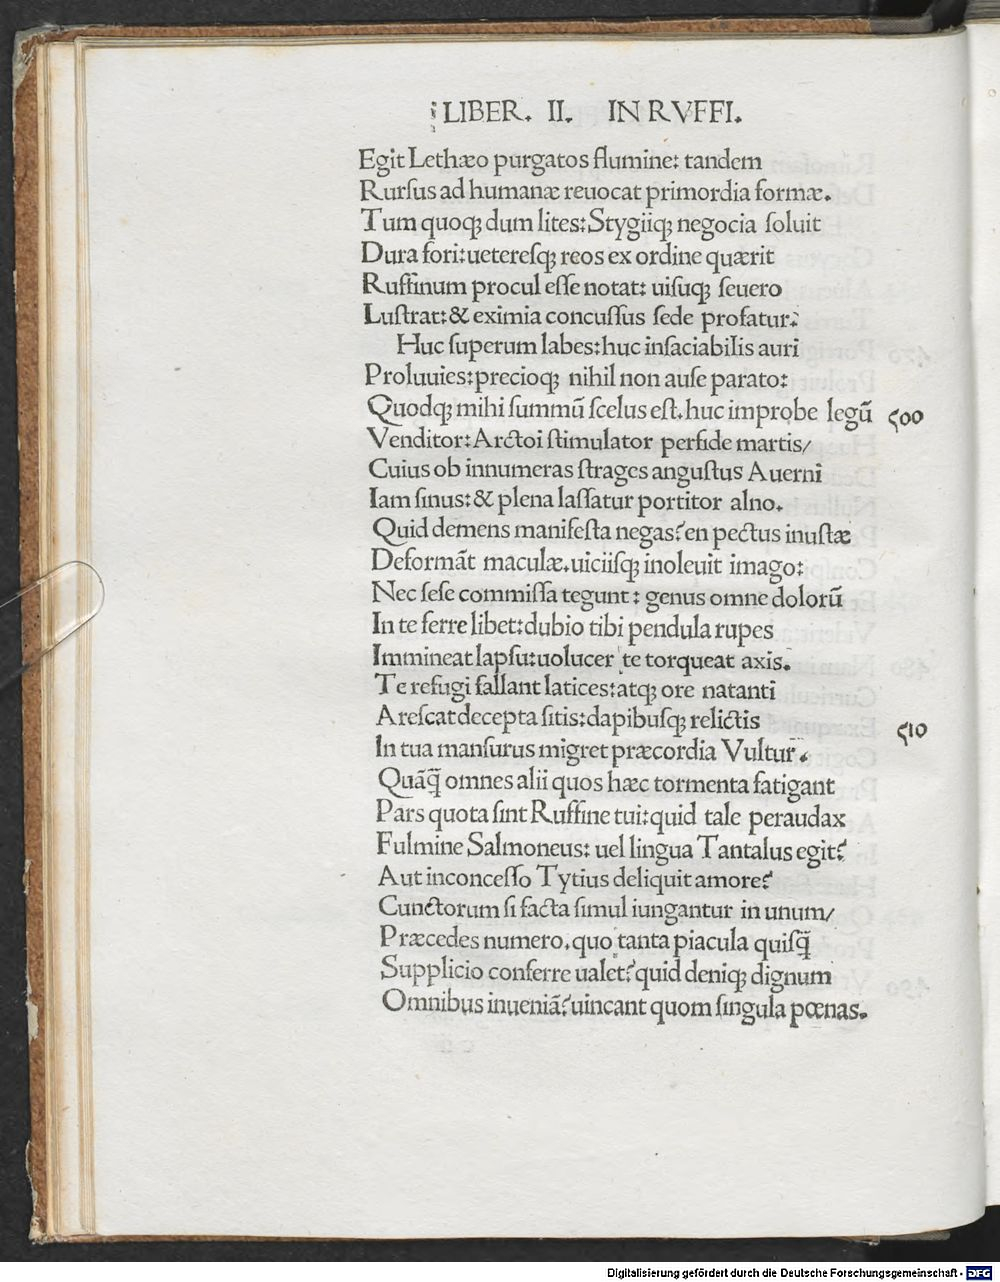 LIBER. II. IN RVFFI.
Egit Lethæo purgatos flumine: tandem
Rurſus ad humanæ reuocat primordia formæ.
Tum quoqꝫ dum lites: Stygiiqꝫ negocia ſoluit
Dura fori: uetereſqꝫ reos ex ordine quærit
Ruffinum procul eſſe notat: uiſuqꝫ ſeuero
Luſtrat: & eximia concuſſus ſede profatur:
Huc ſuperum labes: huc inſaciabilis auri
Proluuies: precioqꝫ nihil non auſe parato:
Quodqꝫ mihi ſummū ſcelus eſt. huc improbe legū 500
Venditor: Arctoi ſtimulator perfide martis/
Cuius ob innumeras ſtrages anguſtus Auerni
Iam ſinus: & plena laſſatur portitor alno.
Quid demens manifeſta negas? en pectus inuſtæ
Deformāt maculæ. uiciiſqꝫ inoleuit imago:
Nec ſeſe commiſſa tegunt: genus omne dolorū
In te ferre libet: dubio tibi pendula rupes
Immineat lapſu: uolucer te torqueat axis.
Te refugi fallant latices: atqꝫ ore natanti
Areſcat decepta ſitis: dapibuſqꝫ relictis
In tua manſurus migret præcordia Vultur. 510
Quāq̄ omnes alii quos hæc tormenta fatigant
Pars quota ſint Ruffine tui: quid tale peraudax
Fulmine Salmoneus: uel lingua Tantalus egit?
Aut inconceſſo Tytius deliquit amore?
Cunctorum ſi facta ſimul iungantur in unum/
Præcedes numero. quo tanta piacula quiſq̄
Supplicio conferre ualet? quid deniqꝫ dignum
Omnibus inueniā? uincant quom ſingula pœnas.
Digitalisierung gefördert durch die Deutsche Forschungsgemeinschaft - DFG